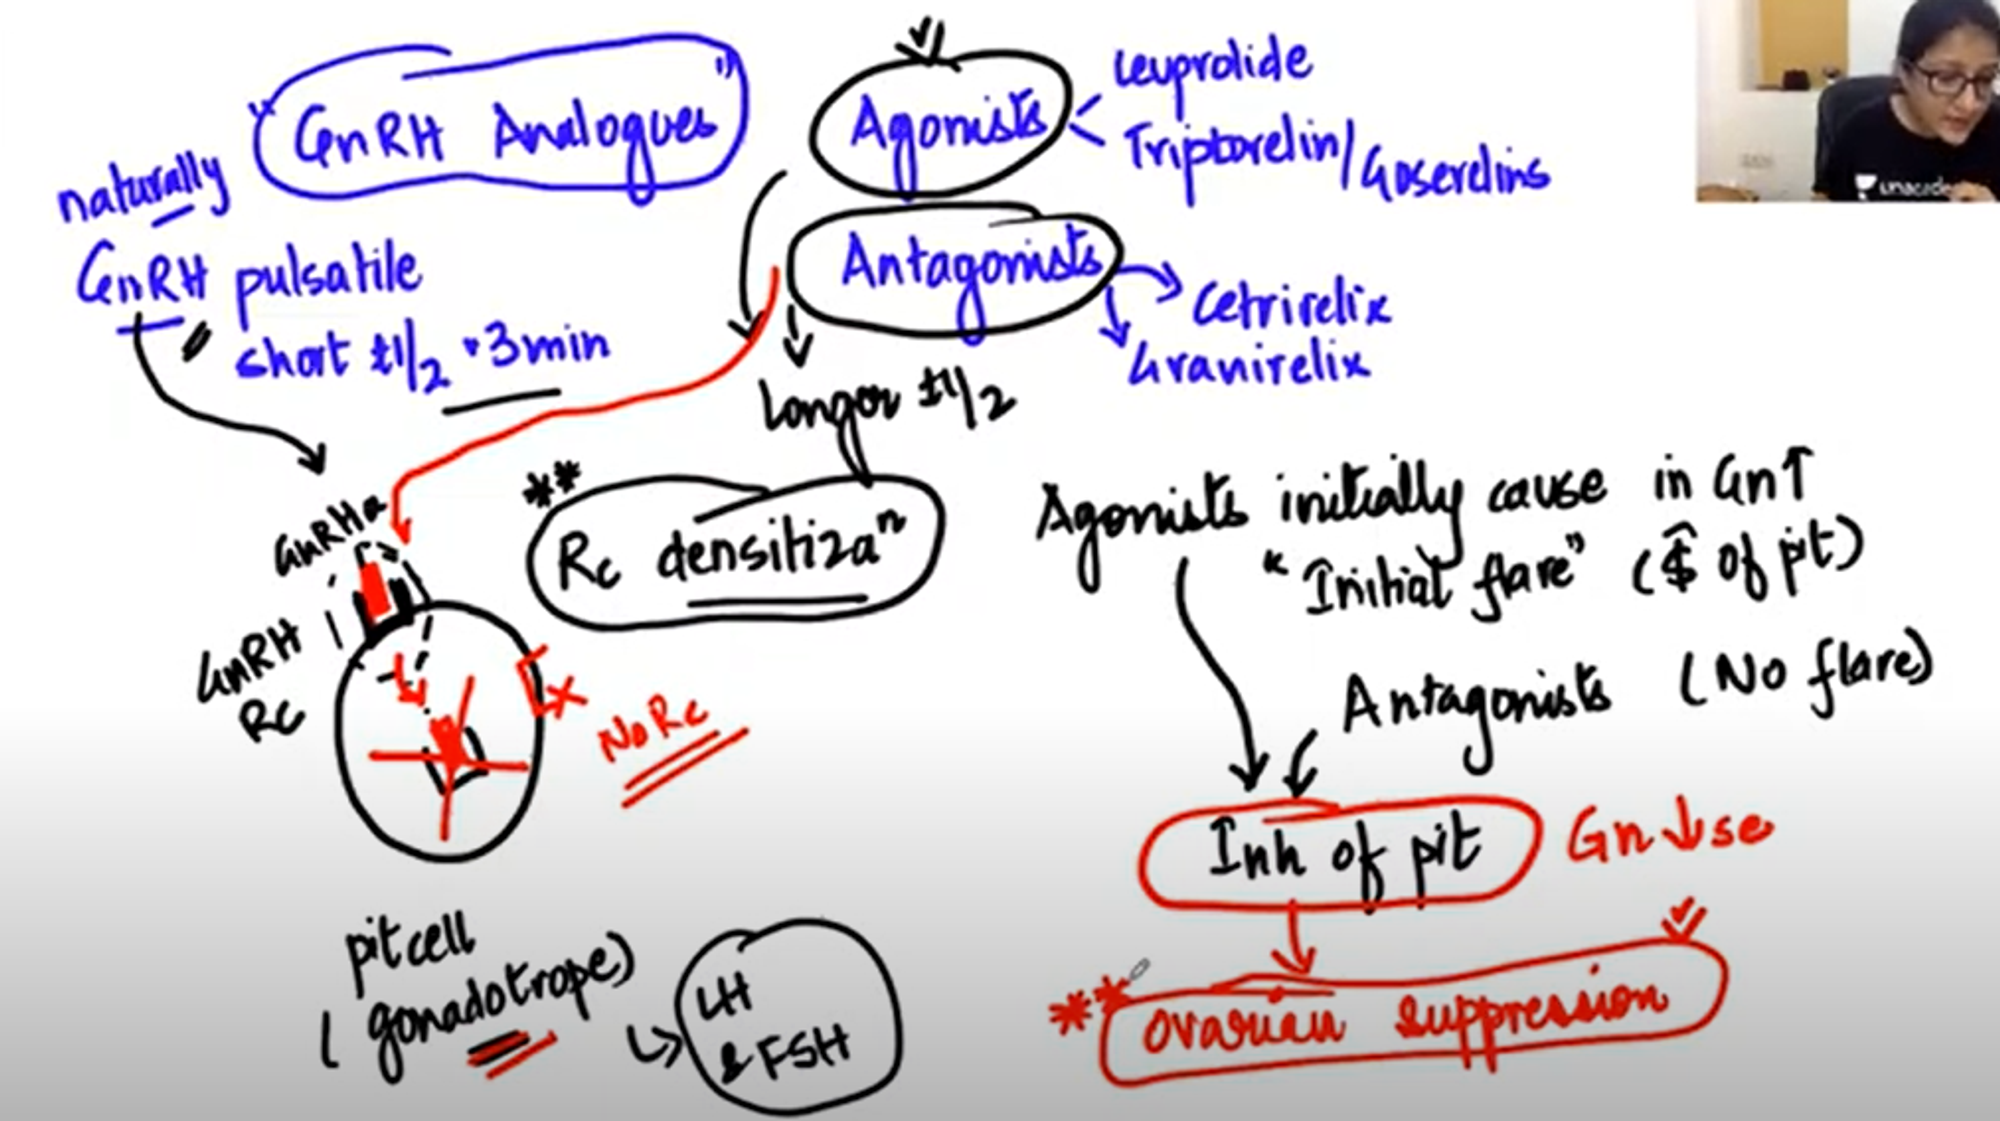 "GnRH Analogues"
Agonists
Leuprolide
Triptorelin/Goserelins
Antagonists
Cetrirelix
Granirelix
naturally
GnRH pulsatile
short t1/2 "3min
Longer t1/2
**
Rc densitizaⁿ
GnRHa
GnRH
Rc
No Rc
pit cell
(gonadotrope)
LH
& FSH
Agonists initially cause in Gn↑
"Initial flare" ( of pit)
Antagonists (No flare)
Inh of pit
Gn↓se
**
ovarian suppression
unacade